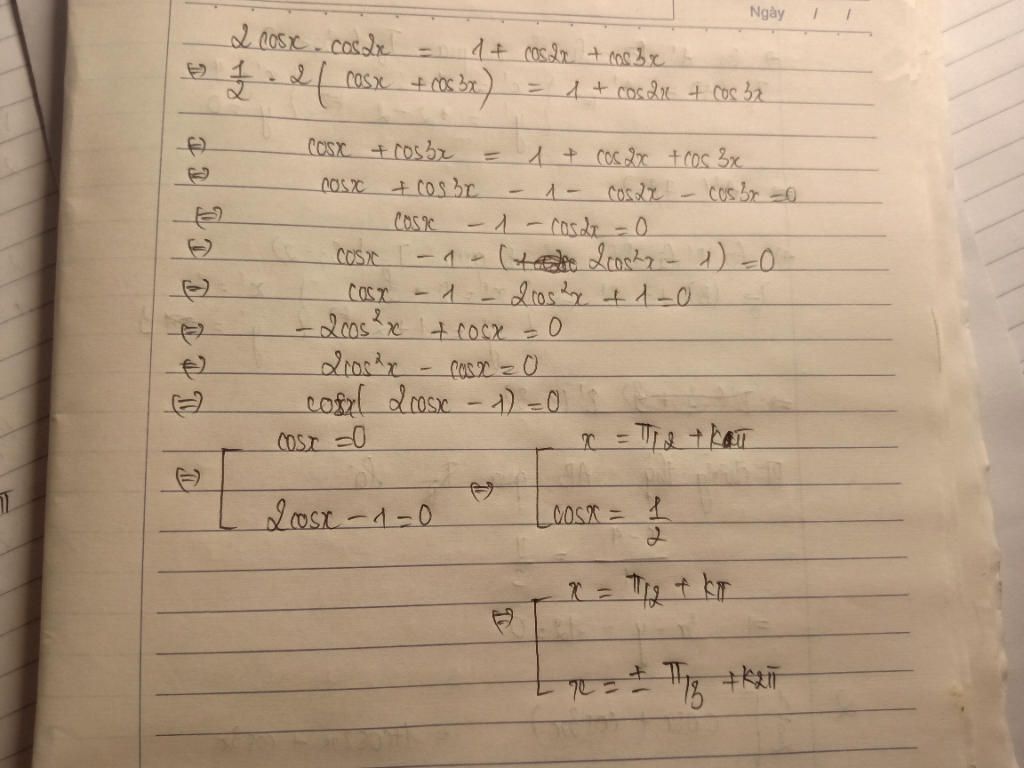 Ngày / /
2cosx . cos2x = 1 + cos2x + cos3x
⇔ 1/2 . 2 ( cosx + cos3x ) = 1 + cos2x + cos3x
⇔ cosx + cos3x = 1 + cos2x + cos3x
⇔ cosx + cos3x - 1 - cos2x - cos3x = 0
⇔ cosx - 1 - cos2x = 0
⇔ cosx - 1 - ( 2cos²x - 1 ) = 0
⇔ cosx - 1 - 2cos²x + 1 = 0
⇔ - 2cos²x + cosx = 0
⇔ 2cos²x - cosx = 0
⇔ cosx( 2cosx - 1) = 0
⇔ [ cosx = 0 ⇔ [ x = π/2 + kπ
2cosx - 1 = 0 cosx = 1/2
⇔ [ x = π/2 + kπ
x = ± π/3 + k2π